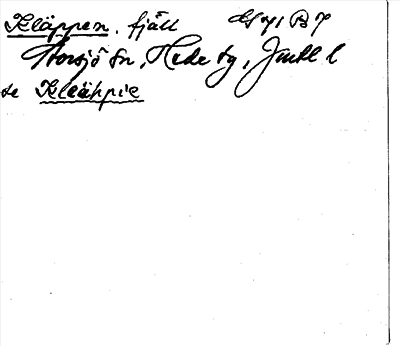 Kläppen, fjäll GV 71 B 7
Storsjö sn, Hede tg, Jmtl l
se Kleähpie